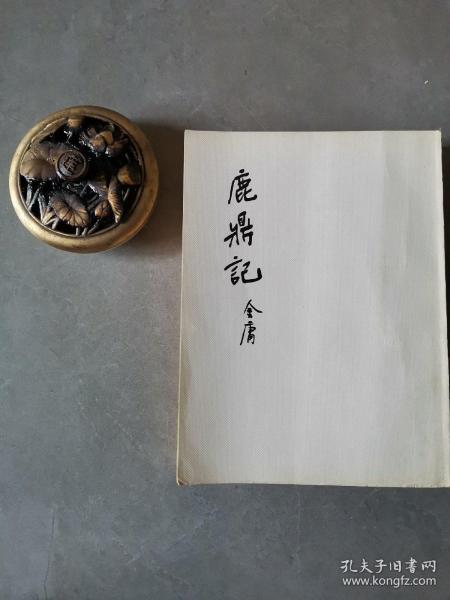 鹿鼎記
金庸
孔夫子旧书网
www.kongfz.com